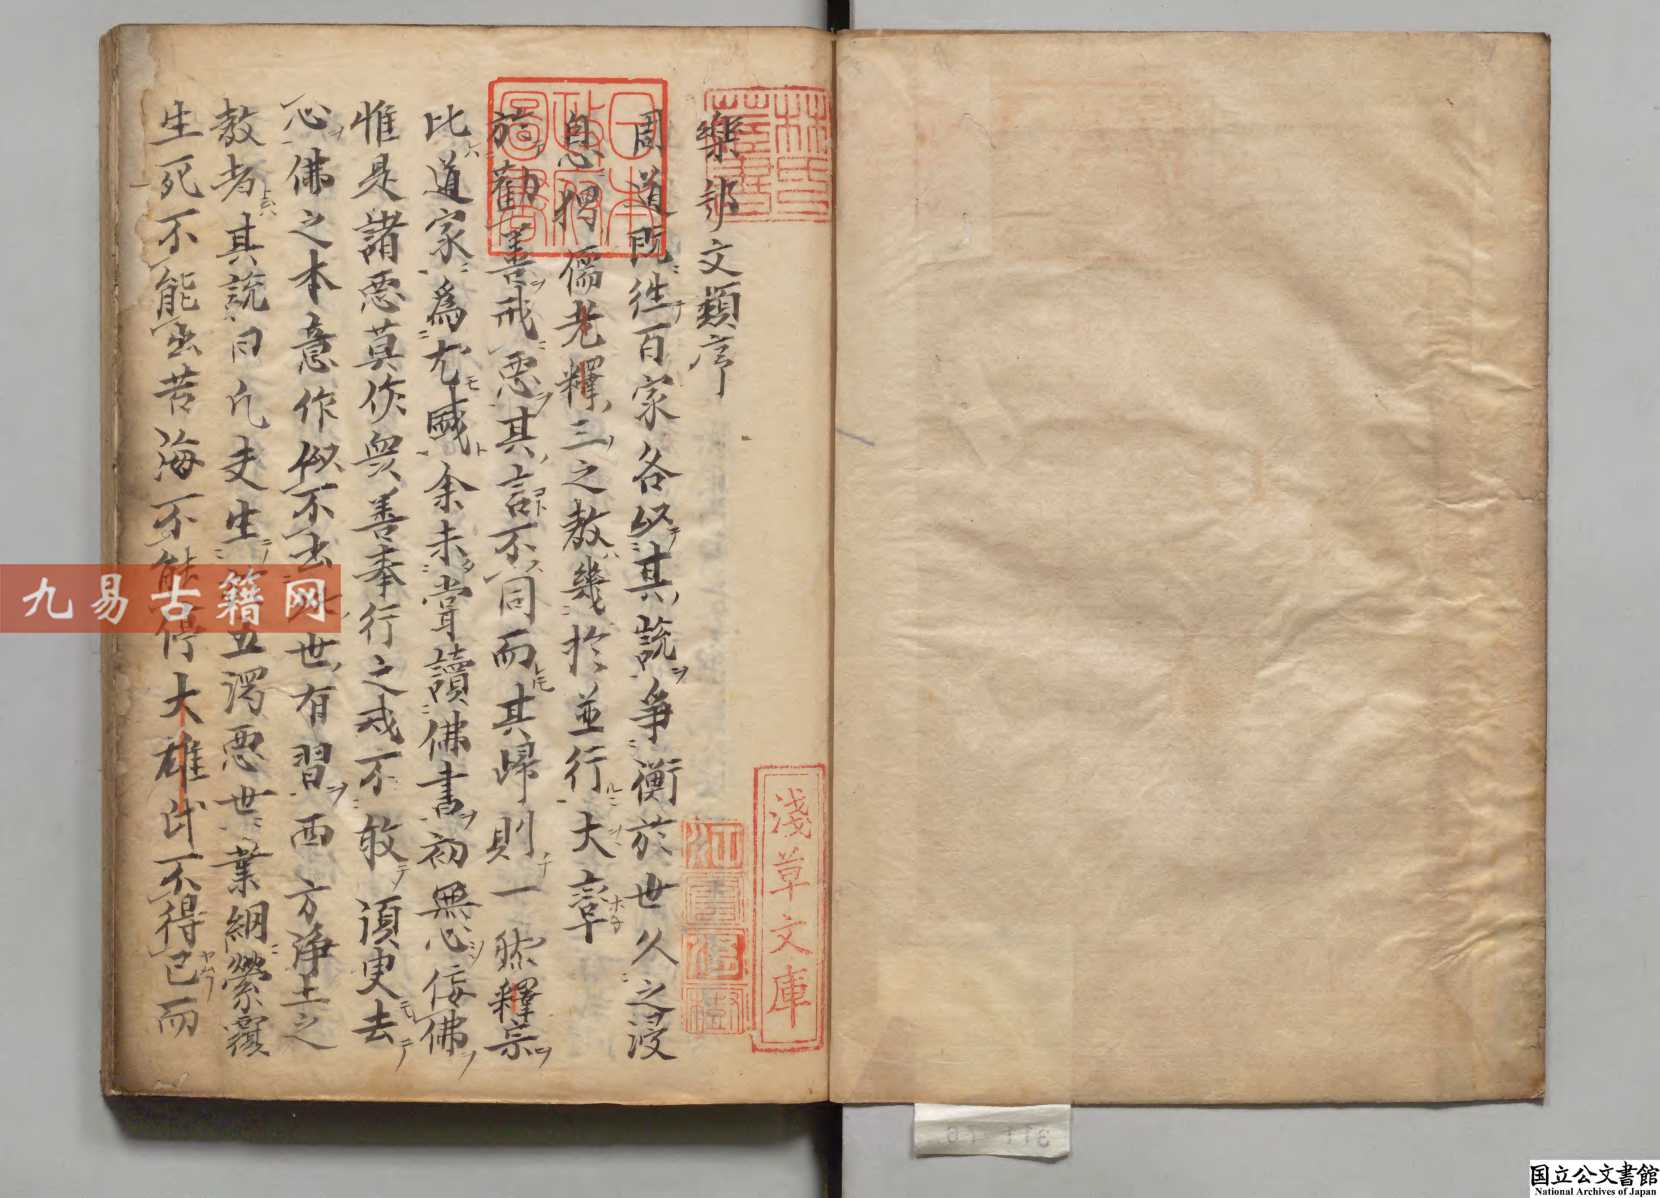 樂邦文類序
周道既往百家各以其說爭衡於世久之浸
息獨儒老釋三之教幾於並行大率
於勸善戒惡其言不同而其歸則一然釋宗
比道家為尤盛余未嘗讀佛書初無心佞佛
惟是諸惡莫作眾善奉行之戒不敢須臾去
心佛之本意作似不去世有習西方淨土之
教者其說曰凡夫生五濁惡世業網縈覆
生死不能出苦海不能停大雄氏不得已而
林氏藏書
日本政府圖書
淺草文庫
江雲渭樹
九易古籍网
国立公文書館
National Archives of Japan